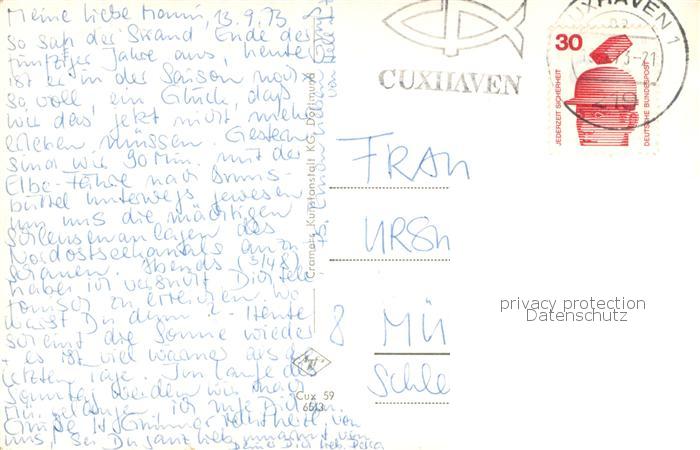 Meine liebe Mammi, 13.9.73
So sah der Strand Ende der
fünfziger Jahre aus, heute
ist er in der Saison noch
so voll, ein Glück, daß
wir das jetzt nicht mehr
erleben müssen. Gestern
sind wir 90 Min. mit der
Elbe-Fähre nach Bruns-
büttel unterwegs gewesen
um uns die mächtigen
Schleusenanlagen des
Nordostseekanals anzu
schauen. Abends (3/48)
habe ich versucht Dich tele
fonisch zu erreichen. Wo
warst Du denn? - Heute
scheint die Sonne wieder
+ es ist viel wärmer als die
letzten Tage. Im Laufe des
Sonntag werden wir nach
Mü. gelangen. ich rufe Dich an.
Grüße
uns, Sei Du ganz lieb umarmt von
Deiner Dich lieb.
Cramers Kunstanstalt KG, Dortmund
Cux 59
6513
CUXHAVEN
CUXHAVEN 1
219
30
JEDERZEIT SICHERHEIT
DEUTSCHE BUNDESPOST
FRAU
URSU
8 MÜ
Schle
privacy protection
Datenschutz